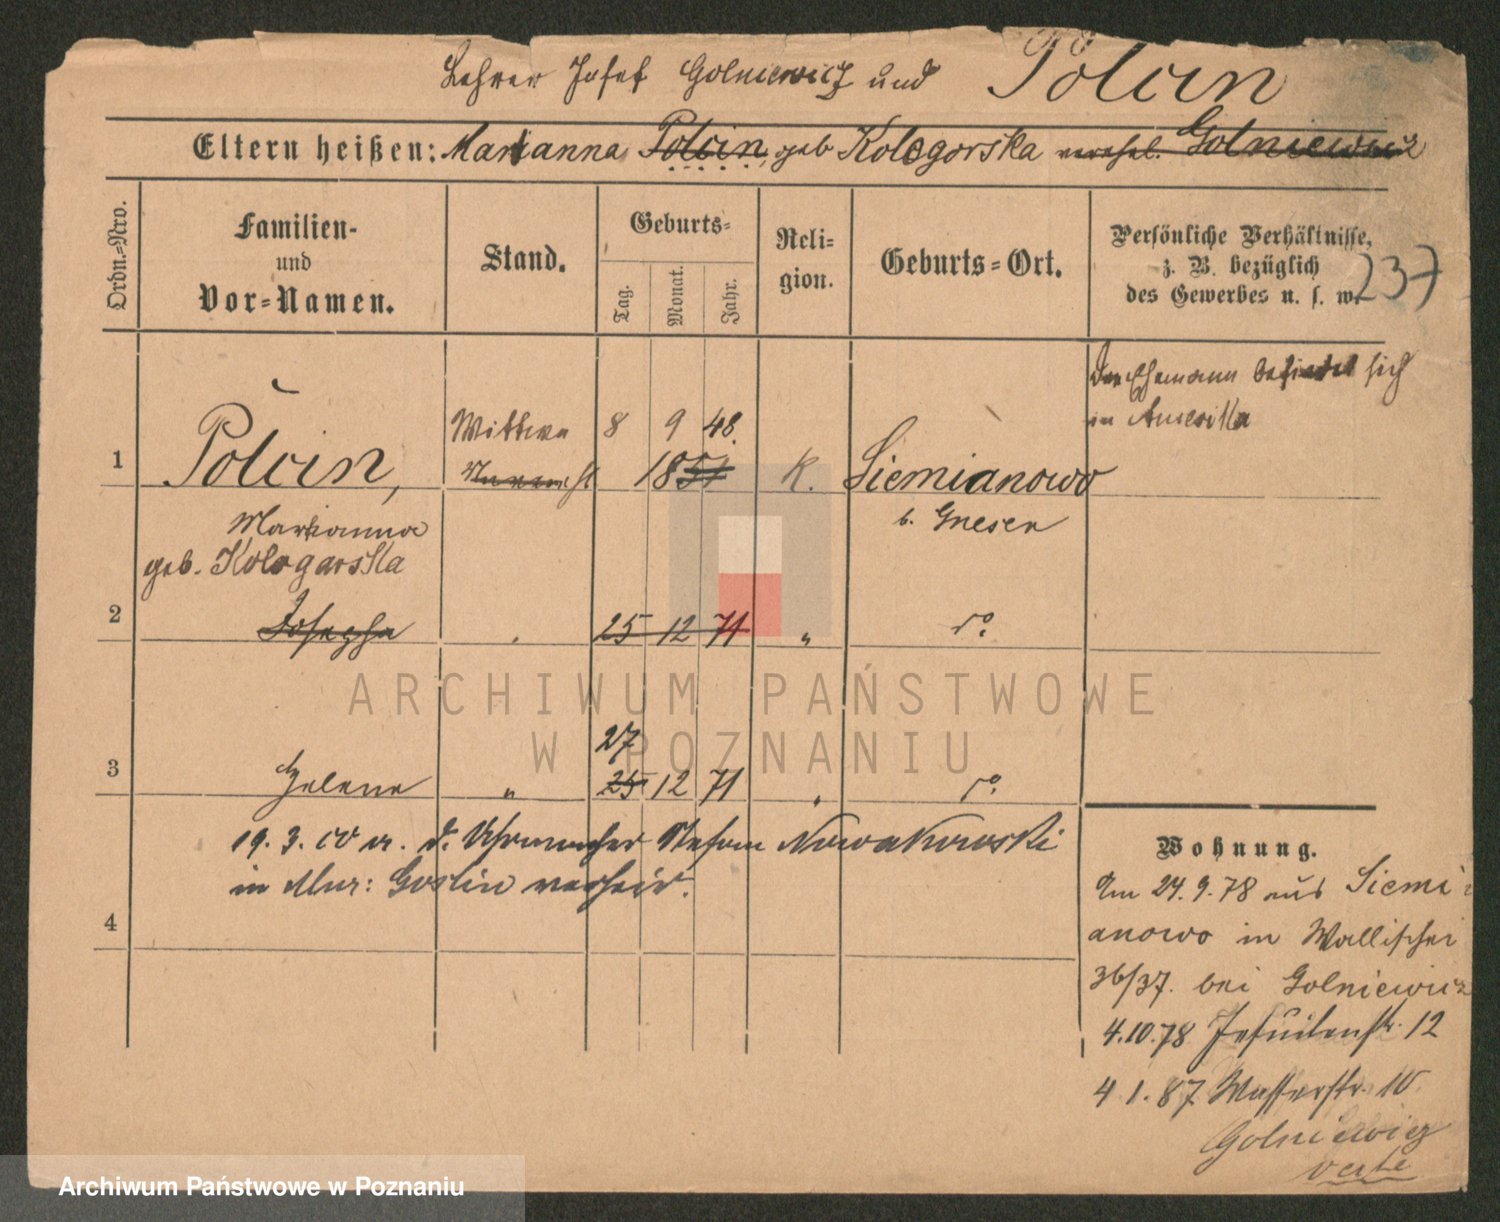 Lehrer Josef Golniewicz und Polcin
Eltern heißen: Marianna Polcin, geb Kologorska verehel. Golniewicz
Ordn.=Nro.
Familien-
und
Vor=Namen.
Stand.
Geburts=
Tag.
Monat.
Jahr.
Reli=
gion.
Geburts=Ort.
Persönliche Verhältnisse,
z. B. bezüglich
des Gewerbes u. s. w.
237
Der Ehemann befindet sich
in Amerika
1
Polcin,
Wittwe
8 9 48.
1851
K.
Siemianowo
b. Gnesen
Marianna
geb. Kologarska
2
Josepha
25 12 71
"
do.
3
Helene
"
27
25 12 71
"
do.
19. 3. d. Uhrmacher Stefan Nowakowski
in Mur: Goslin verheir.
4
Wohnung.
Am 24. 9. 78 aus Siemi
anowo in Wallischei
36/37. bei Golniewicz
4.10.78 Jesuitenstr. 12
4 1. 87 Wasserstr. 10
Golniewicz
verte
ARCHIWUM PAŃSTWOWE
W POZNANIU
Archiwum Państwowe w Poznaniu